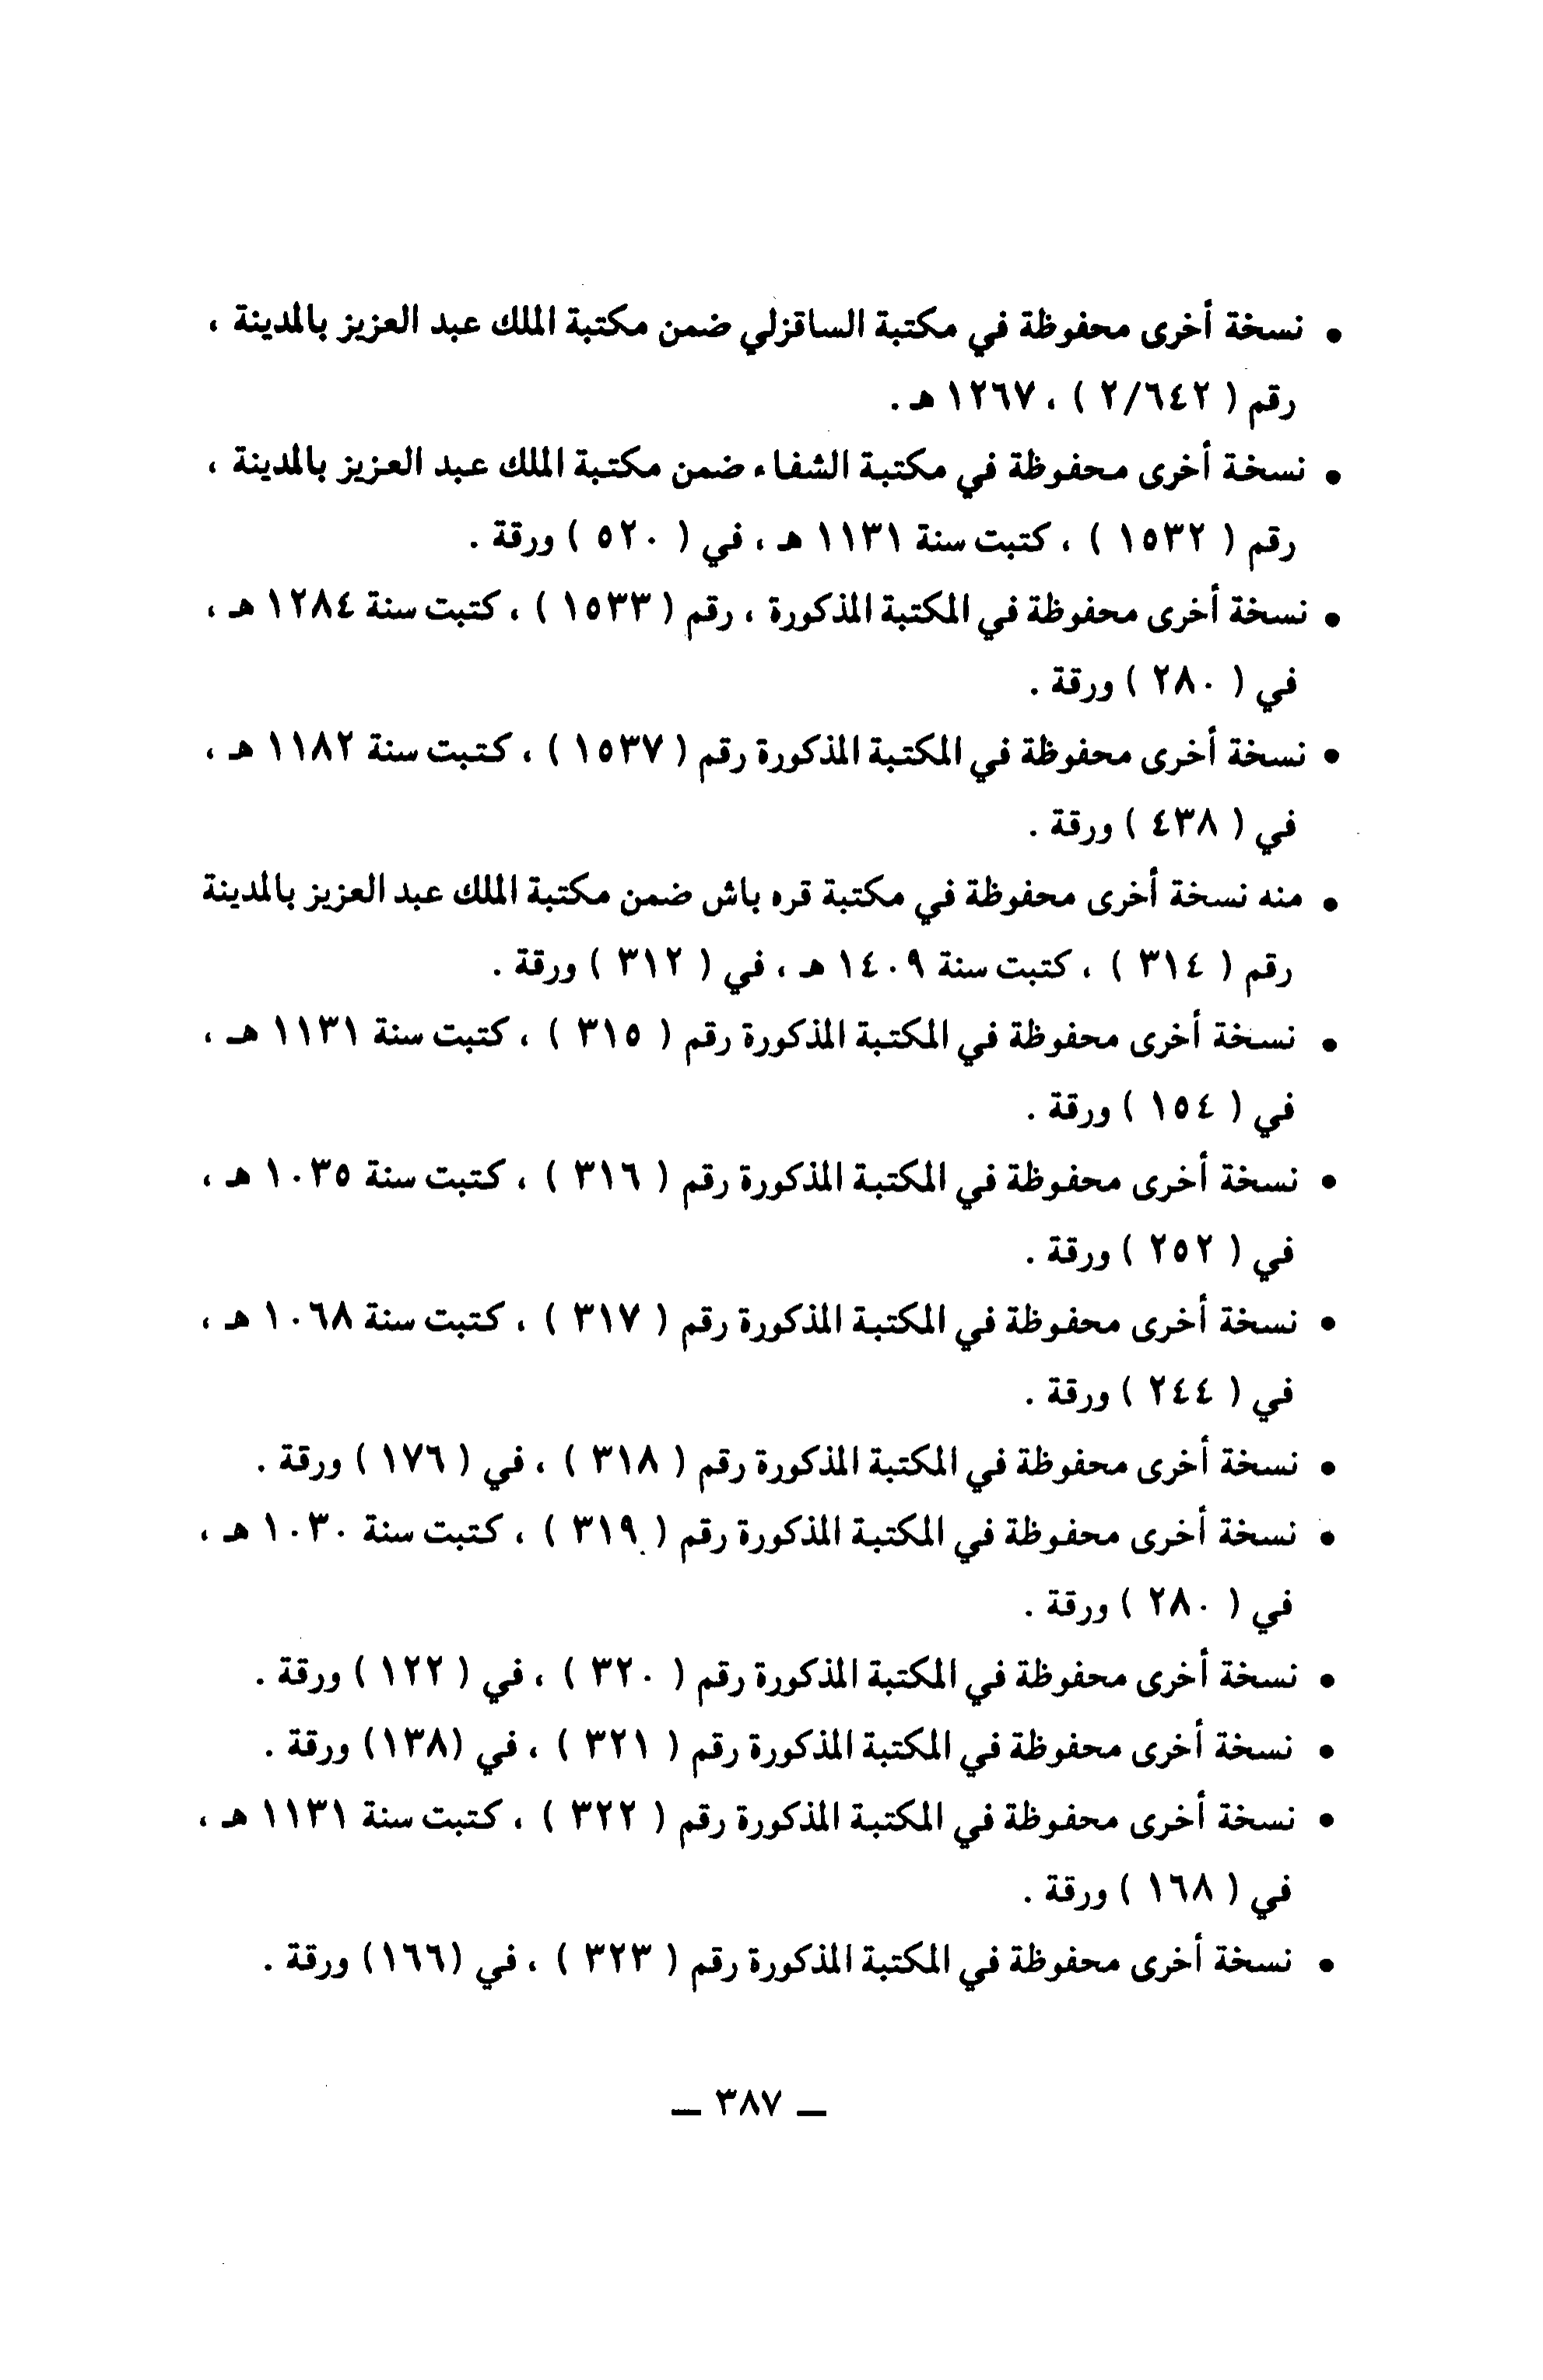 • نسخة أخرى محفوظة في مكتبة الساقزلي ضمن مكتبة الملك عبد العزيز بالمدينة ،
رقم ( ٢/٦٤٢ ) ، ١٢٦٧ هـ .
• نسخة أخرى محفوظة في مكتبة الشفاء ضمن مكتبة الملك عبد العزيز بالمدينة ،
رقم ( ١٥٣٢ ) ، كتبت سنة ١١٣١ هـ ، في ( ٥٢٠ ) ورقة .
• نسخة أخرى محفوظة في المكتبة المذكورة ، رقم ( ١٥٣٣ ) ، كتبت سنة ١٢٨٤ هـ ،
في ( ٢٨٠ ) ورقة .
• نسخة أخرى محفوظة في المكتبة المذكورة رقم ( ١٥٣٧ ) ، كتبت سنة ١١٨٢ هـ ،
في ( ٤٣٨ ) ورقة .
• منه نسخة أخرى محفوظة في مكتبة قره باش ضمن مكتبة الملك عبد العزيز بالمدينة
رقم ( ٣١٤ ) ، كتبت سنة ١٤٠٩ هـ ، في ( ٣١٢ ) ورقة .
• نسخة أخرى محفوظة في المكتبة المذكورة رقم ( ٣١٥ ) ، كتبت سنة ١١٣١ هـ ،
في ( ١٥٤ ) ورقة .
• نسخة أخرى محفوظة في المكتبة المذكورة رقم ( ٣١٦ ) ، كتبت سنة ١٠٣٥ هـ ،
في ( ٢٥٢ ) ورقة .
• نسخة أخرى محفوظة في المكتبة المذكورة رقم ( ٣١٧ ) ، كتبت سنة ١٠٦٨ هـ ،
في ( ٢٤٤ ) ورقة .
• نسخة أخرى محفوظة في المكتبة المذكورة رقم ( ٣١٨ ) ، في ( ١٧٦ ) ورقة .
• نسخة أخرى محفوظة في المكتبة المذكورة رقم ( ٣١٩ ) ، كتبت سنة ١٠٣٠ هـ ،
في ( ٢٨٠ ) ورقة .
• نسخة أخرى محفوظة في المكتبة المذكورة رقم ( ٣٢٠ ) ، في ( ١٢٢ ) ورقة .
• نسخة أخرى محفوظة في المكتبة المذكورة رقم ( ٣٢١ ) ، في (١٣٨) ورقة .
• نسخة أخرى محفوظة في المكتبة المذكورة رقم ( ٣٢٢ ) ، كتبت سنة ١١٣١ هـ ،
في ( ١٦٨ ) ورقة .
• نسخة أخرى محفوظة في المكتبة المذكورة رقم ( ٣٢٣ ) ، في (١٦٦) ورقة .
— ٣٨٧ —